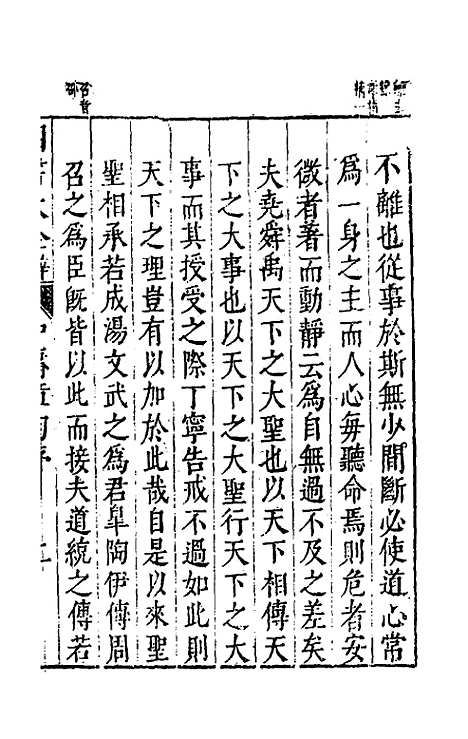 不離也從事於斯無少間斷必使道心常
爲一身之主而人心每聽命焉則危者安
微者著而動靜云爲自無過不及之差矣
夫堯舜禹天下之大聖也以天下相傳天
下之大事也以天下之大聖行天下之大
事而其授受之際丁寧告戒不過如此則
天下之理豈有以加於此哉自是以來聖
聖相承若成湯文武之爲君臯陶伊傅周
召之爲臣旣皆以此而接夫道統之傳若
召音邵